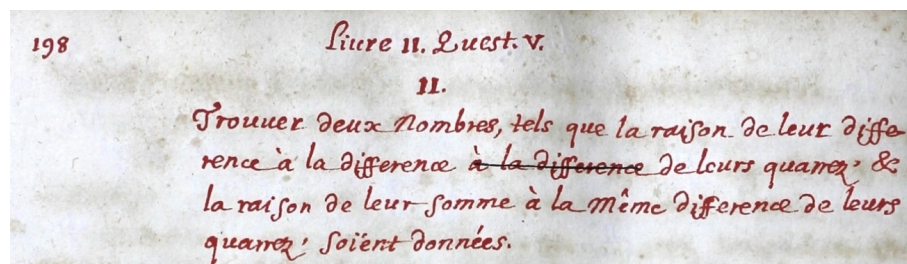 198 Liure II. Quest. V.
II.
Trouuer deux Nombres, tels que la raison de leur diffe-
rence à la difference à la difference de leurs quarrez, &
la raison de leur somme à la même difference de leurs
quarrez, soient données.